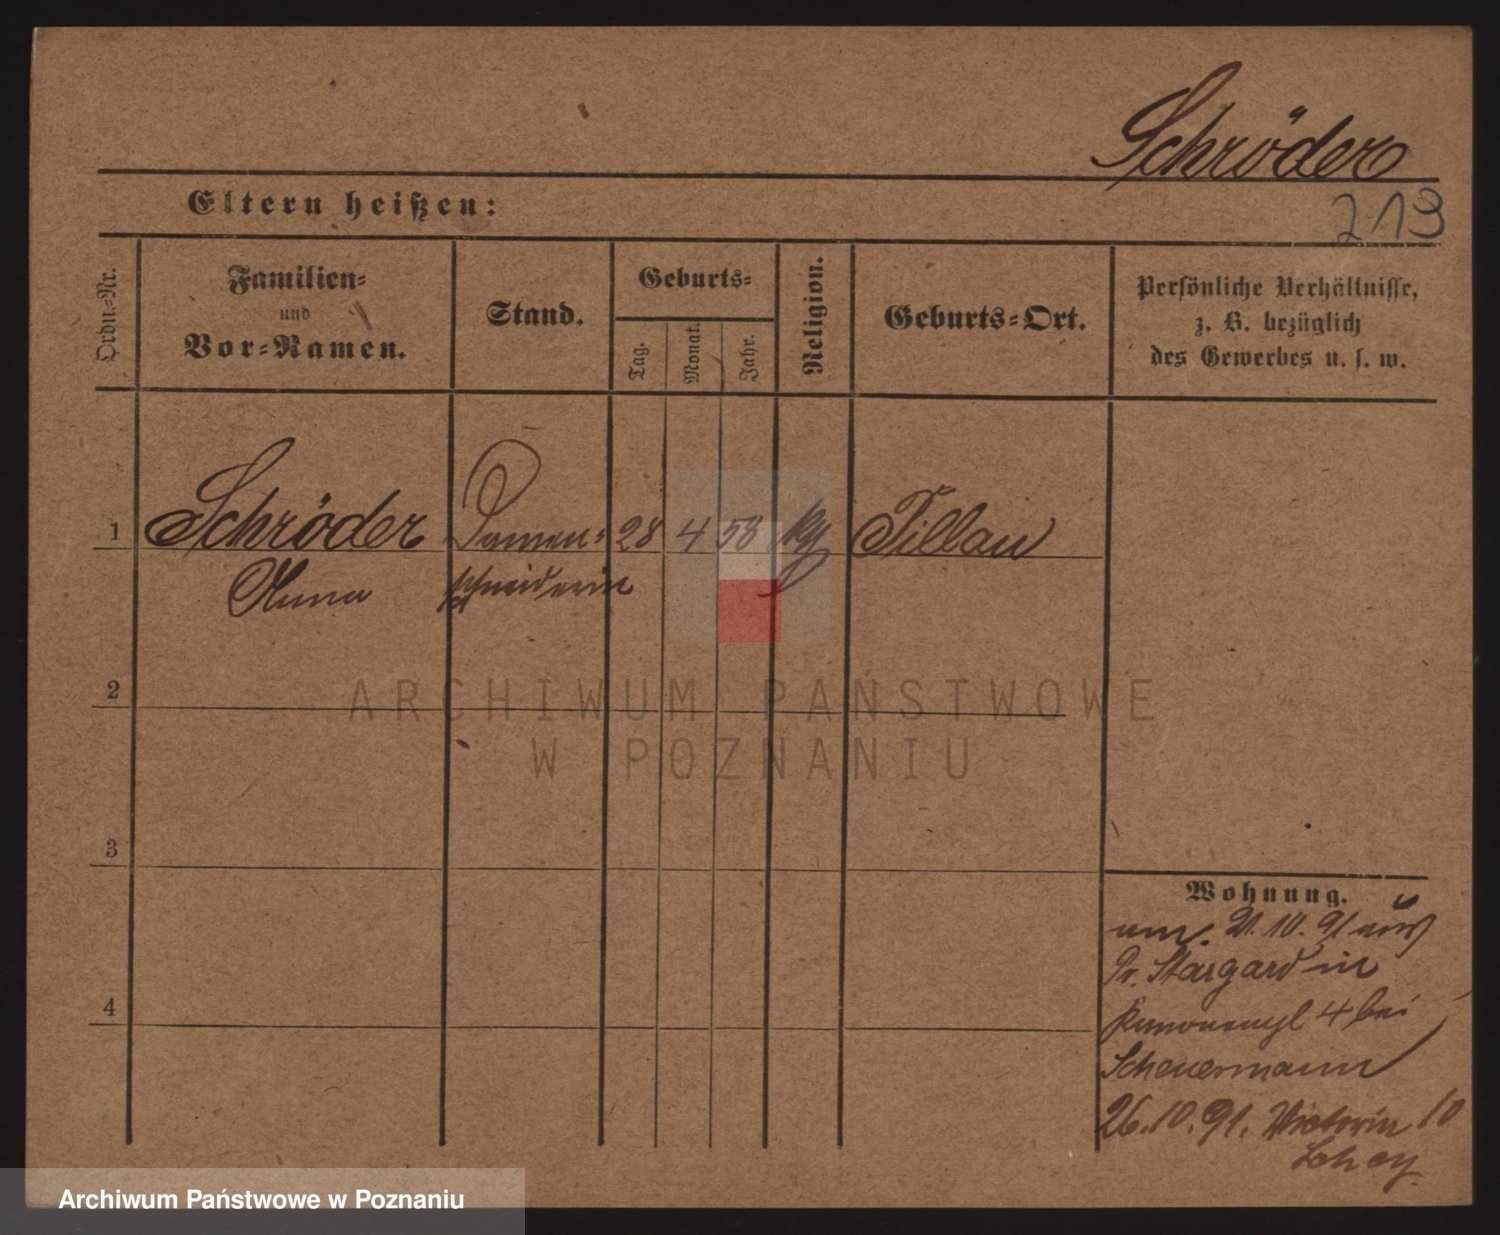 Schröder
213
Eltern heißen:
Ordn.-Nr.
Familien-
und
Vor-Namen.
Stand.
Geburts-
Tag.
Monat.
Jahr.
Religion.
Geburts-Ort.
Persönliche Verhältnisse,
z. B. bezüglich
des Gewerbes u. s. w.
1 Schröder Damen- 28 4 58 Pillau
Anna schneiderin
2
ARCHIWUM PAŃSTWOWE
W POZNANIU
3
Wohnung.
am. 21.10.91 aus
Pr. Stargard in
4 bei
Scheuermann
26.10.91. Victoria 10
4
Archiwum Państwowe w Poznaniu